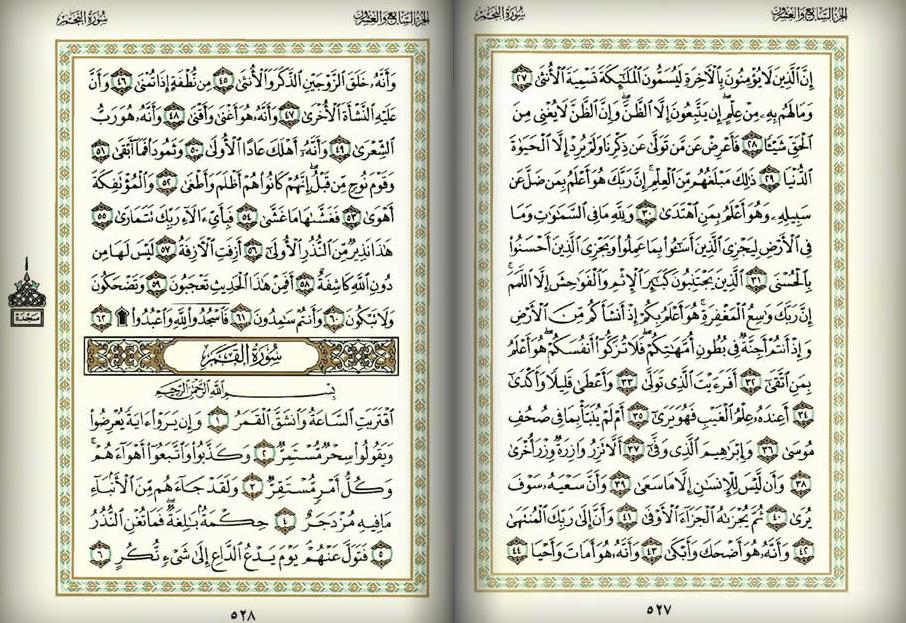 الجزء السابع والعشرون
سورة النجم
إِنَّ ٱلَّذِينَ لَا يُؤْمِنُونَ بِٱلْآخِرَةِ لَيُسَمُّونَ ٱلْمَلَٰٓئِكَةَ تَسْمِيَةَ ٱلْأُنثَىٰ ٢٧
وَمَا لَهُم بِهِۦ مِنْ عِلْمٍ إِن يَتَّبِعُونَ إِلَّا ٱلظَّنَّ وَإِنَّ ٱلظَّنَّ لَا يُغْنِى مِنَ
ٱلْحَقِّ شَيْـًٔا ٢٨ فَأَعْرِضْ عَن مَّن تَوَلَّىٰ عَن ذِكْرِنَا وَلَمْ يُرِدْ إِلَّا ٱلْحَيَوٰةَ
ٱلدُّنْيَا ٢٩ ذَٰلِكَ مَبْلَغُهُم مِّنَ ٱلْعِلْمِ إِنَّ رَبَّكَ هُوَ أَعْلَمُ بِمَن ضَلَّ عَن
سَبِيلِهِۦ وَهُوَ أَعْلَمُ بِمَنِ ٱهْتَدَىٰ ٣٠ وَلِلَّهِ مَا فِى ٱلسَّمَٰوَٰتِ وَمَا
فِى ٱلْأَرْضِ لِيَجْزِىَ ٱلَّذِينَ أَسَٰٓـُٔوا۟ بِمَا عَمِلُوا۟ وَيَجْزِىَ ٱلَّذِينَ أَحْسَنُوا۟
بِٱلْحُسْنَى ٣١ ٱلَّذِينَ يَجْتَنِبُونَ كَبَٰٓئِرَ ٱلْإِثْمِ وَٱلْفَوَٰحِشَ إِلَّا ٱللَّمَمَ
إِنَّ رَبَّكَ وَٰسِعُ ٱلْمَغْفِرَةِ هُوَ أَعْلَمُ بِكُمْ إِذْ أَنشَأَكُم مِّنَ ٱلْأَرْضِ
وَإِذْ أَنتُمْ أَجِنَّةٌ فِى بُطُونِ أُمَّهَٰتِكُمْ فَلَا تُزَكُّوٓا۟ أَنفُسَكُمْ هُوَ أَعْلَمُ
بِمَنِ ٱتَّقَىٰٓ ٣٢ أَفَرَءَيْتَ ٱلَّذِى تَوَلَّىٰ ٣٣ وَأَعْطَىٰ قَلِيلًا وَأَكْدَىٰٓ
٣٤ أَعِندَهُۥ عِلْمُ ٱلْغَيْبِ فَهُوَ يَرَىٰٓ ٣٥ أَمْ لَمْ يُنَبَّأْ بِمَا فِى صُحُفِ
مُوسَىٰ ٣٦ وَإِبْرَٰهِيمَ ٱلَّذِى وَفَّىٰٓ ٣٧ أَلَّا تَزِرُ وَازِرَةٌ وِزْرَ أُخْرَىٰ
٣٨ وَأَن لَّيْسَ لِلْإِنسَٰنِ إِلَّا مَا سَعَىٰ ٣٩ وَأَنَّ سَعْيَهُۥ سَوْفَ
يُرَىٰ ٤٠ ثُمَّ يُجْزَىٰهُ ٱلْجَزَآءَ ٱلْأَوْفَىٰ ٤١ وَأَنَّ إِلَىٰ رَبِّكَ ٱلْمُنتَهَىٰ
٤٢ وَأَنَّهُۥ هُوَ أَضْحَكَ وَأَبْكَىٰ ٤٣ وَأَنَّهُۥ هُوَ أَمَاتَ وَأَحْيَا ٤٤
٥٢٧
الجزء السابع والعشرون
سورة النجم
وَأَنَّهُۥ خَلَقَ ٱلزَّوْجَيْنِ ٱلذَّكَرَ وَٱلْأُنثَىٰ ٤٥ مِن نُّطْفَةٍ إِذَا تُمْنَىٰ ٤٦ وَأَنَّ
عَلَيْهِ ٱلنَّشْأَةَ ٱلْأُخْرَىٰ ٤٧ وَأَنَّهُۥ هُوَ أَغْنَىٰ وَأَقْنَىٰ ٤٨ وَأَنَّهُۥ هُوَ رَبُّ
ٱلشِّعْرَىٰ ٤٩ وَأَنَّهُۥٓ أَهْلَكَ عَادًا ٱلْأُولَىٰ ٥٠ وَثَمُودَا۟ فَمَآ أَبْقَىٰ ٥١
وَقَوْمَ نُوحٍ مِّن قَبْلُ إِنَّهُمْ كَانُوا۟ هُمْ أَظْلَمَ وَأَطْغَىٰ ٥٢ وَٱلْمُؤْتَفِكَةَ
أَهْوَىٰ ٥٣ فَغَشَّىٰهَا مَا غَشَّىٰ ٥٤ فَبِأَىِّ ءَالَآءِ رَبِّكَ تَتَمَارَىٰ ٥٥
هَٰذَا نَذِيرٌ مِّنَ ٱلنُّذُرِ ٱلْأُولَىٰٓ ٥٦ أَزِفَتِ ٱلْءَازِفَةُ ٥٧ لَيْسَ لَهَا مِن
دُونِ ٱللَّهِ كَاشِفَةٌ ٥٨ أَفَمِنْ هَٰذَا ٱلْحَدِيثِ تَعْجَبُونَ ٥٩ وَتَضْحَكُونَ
وَلَا تَبْكُونَ ٦٠ وَأَنتُمْ سَٰمِدُونَ ٦١ فَٱسْجُدُوا۟ لِلَّهِ وَٱعْبُدُوا۟ ۩ ٦٢
سجدة
سُورَةُ القَمَرِ
بِسْمِ ٱللَّهِ ٱلرَّحْمَٰنِ ٱلرَّحِيمِ
ٱقْتَرَبَتِ ٱلسَّاعَةُ وَٱنشَقَّ ٱلْقَمَرُ ١ وَإِن يَرَوْا۟ ءَايَةً يُعْرِضُوا۟
وَيَقُولُوا۟ سِحْرٌ مُّسْتَمِرٌّ ٢ وَكَذَّبُوا۟ وَٱتَّبَعُوٓا۟ أَهْوَآءَهُمْ
وَكُلُّ أَمْرٍ مُّسْتَقِرٌّ ٣ وَلَقَدْ جَآءَهُم مِّنَ ٱلْأَنۢبَآءِ
مَا فِيهِ مُزْدَجَرٌ ٤ حِكْمَةٌۢ بَٰلِغَةٌ فَمَا تُغْنِ ٱلنُّذُرُ
٥ فَتَوَلَّ عَنْهُمْ يَوْمَ يَدْعُ ٱلدَّاعِ إِلَىٰ شَىْءٍ نُّكُرٍ ٦
٥٢٨